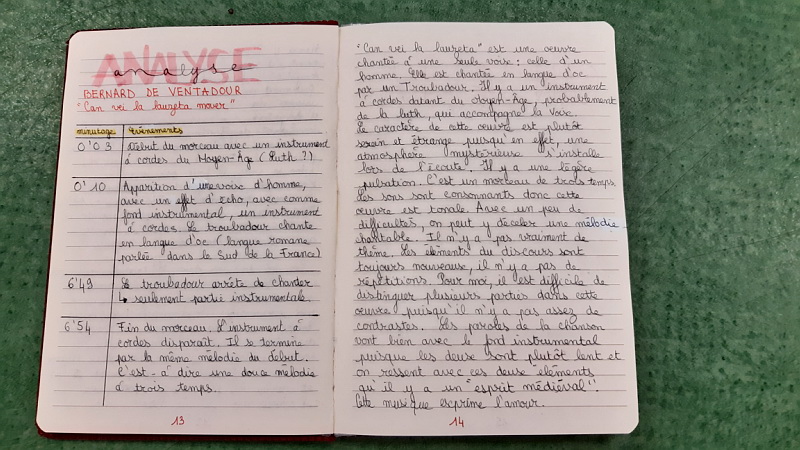 ANALYSE
analyse
BERNARD DE VENTADOUR
"Can vei la lauzeta mover"
minutage Evénements
0'03 Début du morceau avec un instrument
à cordes du Moyen-Âge (Luth ?)
0'10 Apparition d'une voix d'homme,
avec un effet d'écho, avec comme
fond instrumental, un instrument
à cordes. Le troubadour chante
en langue d'oc (langue romane
parlée dans le Sud de la France)
6'49 Le troubadour arrête de chanter
↳ seulement partie instrumentale
6'54 Fin du morceau. L'instrument à
cordes disparaît. Il se termine
par la même mélodie du début.
C'est-à dire une douce mélodie
à trois temps.
13
"Can vei la lauzeta" est une œuvre
chantée à une seule voix : celle d'un
homme. Elle est chantée en langue d'oc
par un Troubadour. Il y a un instrument
à cordes datant du Moyen-Âge, probablement
de la luth, qui accompagne la voix.
Le caractère de cette œuvre est plutôt
serein et étrange puisqu'en effet, une
atmosphère mystérieuse s'installe
lors de l'écoute. Il y a une légère
pulsation. C'est un morceau de trois temps.
Les sons sont consonnants donc cette
œuvre est tonale. Avec un peu de
difficultés, on peut y déceler une mélodie
chantable. Il n'y a pas vraiment de
thème. Les éléments du discours sont
toujours nouveaux, il n'y a pas de
répétitions. Pour moi, il est difficile de
distinguer plusieurs parties dans cette
œuvre puisqu'il n'y a pas assez de
contrastes. Les paroles de la chanson
vont bien avec le fond instrumental
puisque les deux sont plutôt lent et
on ressent avec ces deux éléments
qu'il y a un "esprit médiéval".
Cette musique exprime l'amour.
14